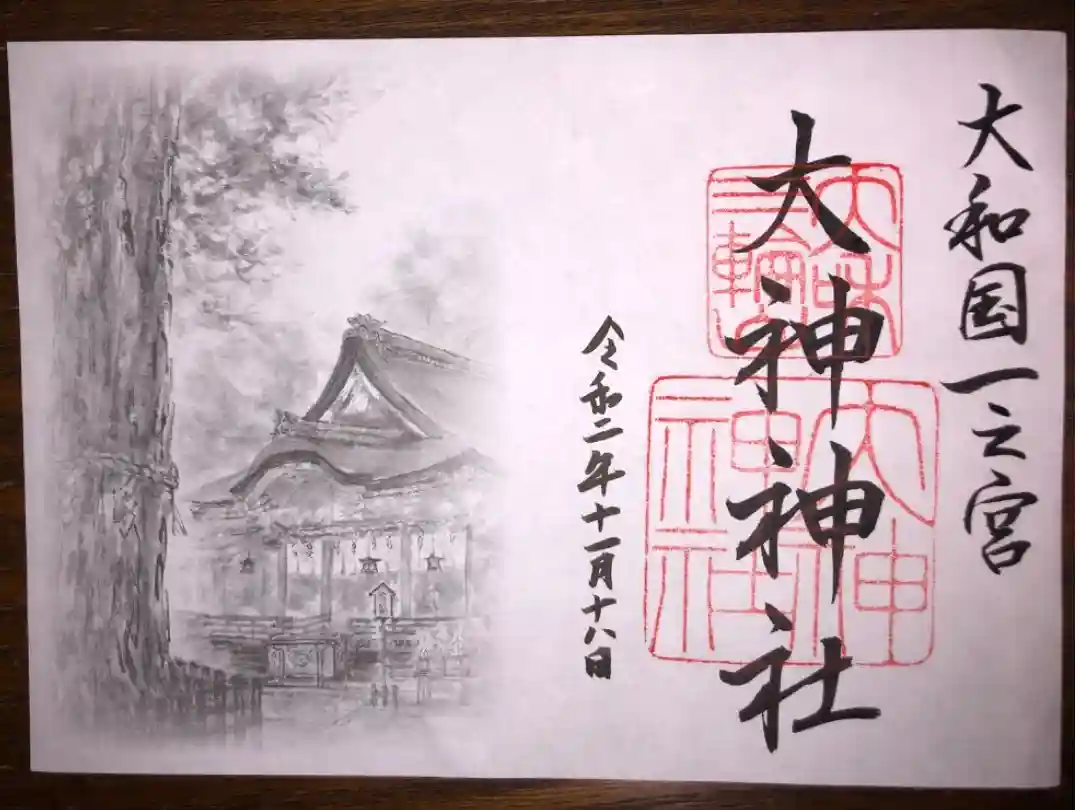 大和国一之宮
大神神社
令和二年十一月十八日
三輪
大神
神社